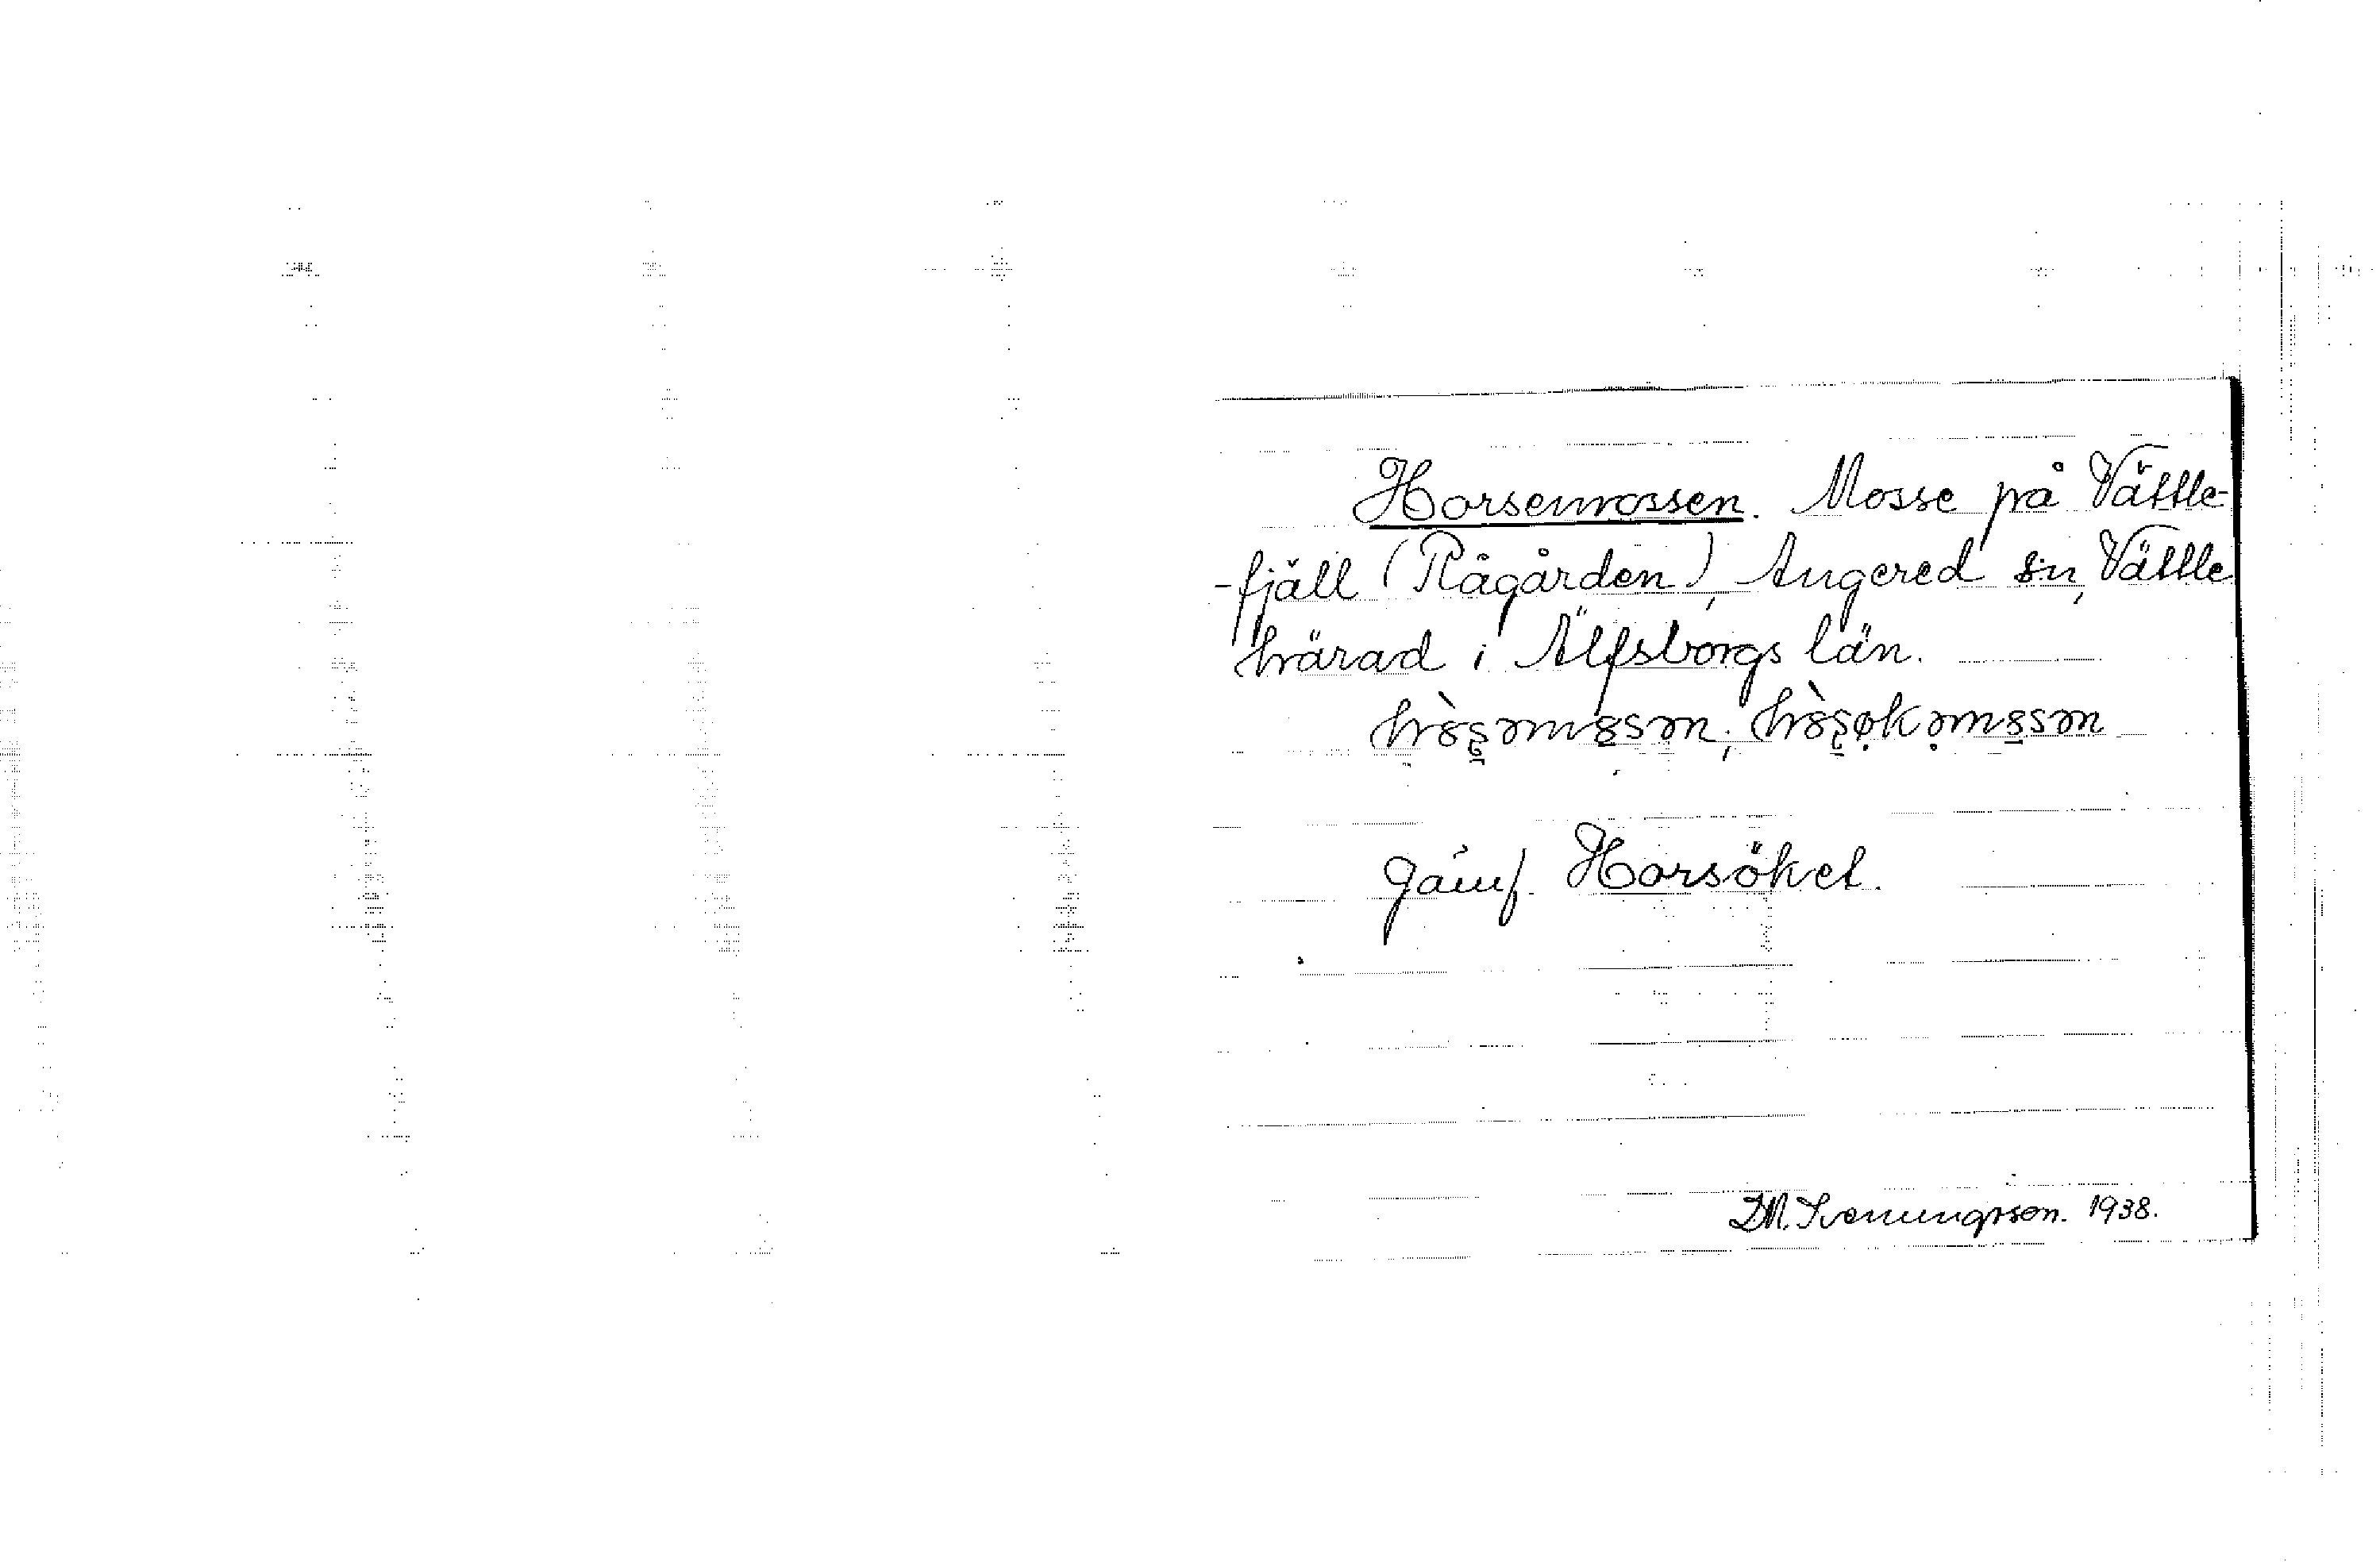 Horsenmossen. Mosse på Vättle-
-fjäll (Rågården), Angered sn, Vättle
härad i Älfsborgs län.
Jämf. Horsöket.
D.M. Svenungsson. 1938.